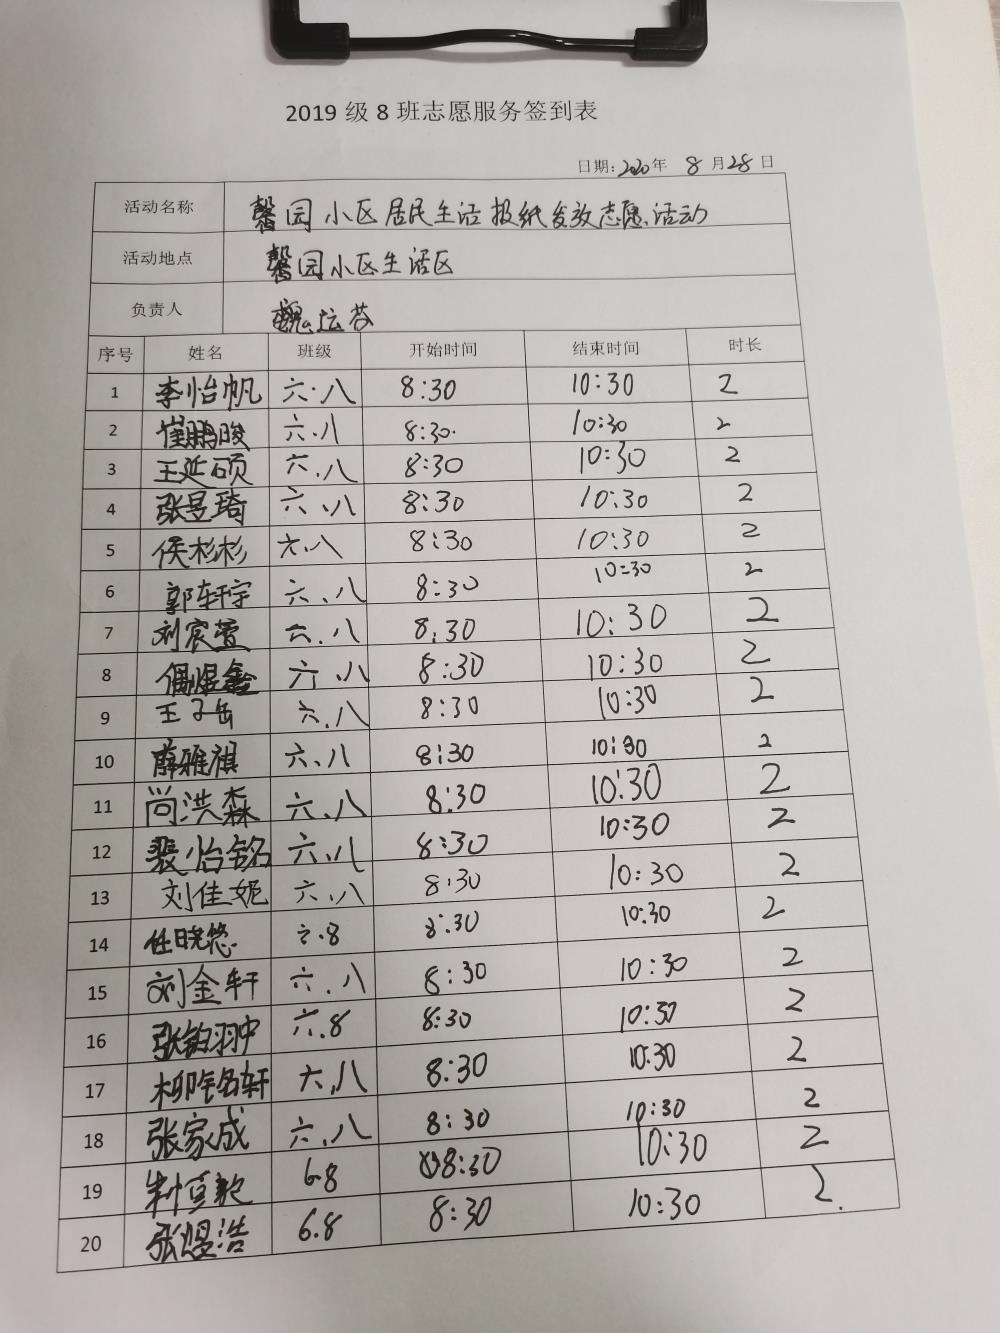 2019 级 8 班志愿服务签到表
日期: 2020 年 8 月 28 日
活动名称 馨园小区居民生活报纸发放志愿活动
活动地点 馨园小区生活区
负责人 魏坛芬
序号 姓名 班级 开始时间 结束时间 时长
1 李怡帆 六.八 8:30 10:30 2
2 崔鹏晙 六.八 8:30. 10:30 2
3 王延硕 六.八 8:30 10:30 2
4 张昱琦 六.八 8:30 10:30 2
5 侯杉杉 六.八 8:30 10:30 2
6 郭轩宇 六.八 8:30 10:30 2
7 刘宸萱 六.八 8:30 10:30 2
8 六.八 8:30 10:30 2
9 王子岳 六.八 8:30 10:30 2
10 薛雅祺 六.八 8:30 10:30 2
11 尚洪森 六.八 8:30 10:30 2
12 裴怡铭 六.八 8:30 10:30 2
13 刘佳妮 六.八 8:30 10:30 2
14 任晓悠 六.8 8:30 10:30 2
15 刘金轩 六.八 8:30 10:30 2
16 六.8 8:30 10:30 2
17 六.八 8:30 10:30 2
18 张家成 六.八 8:30 10:30 2
19 6.8 8:30 10:30 2
20 张煜浩 6.8 8:30 10:30 2.